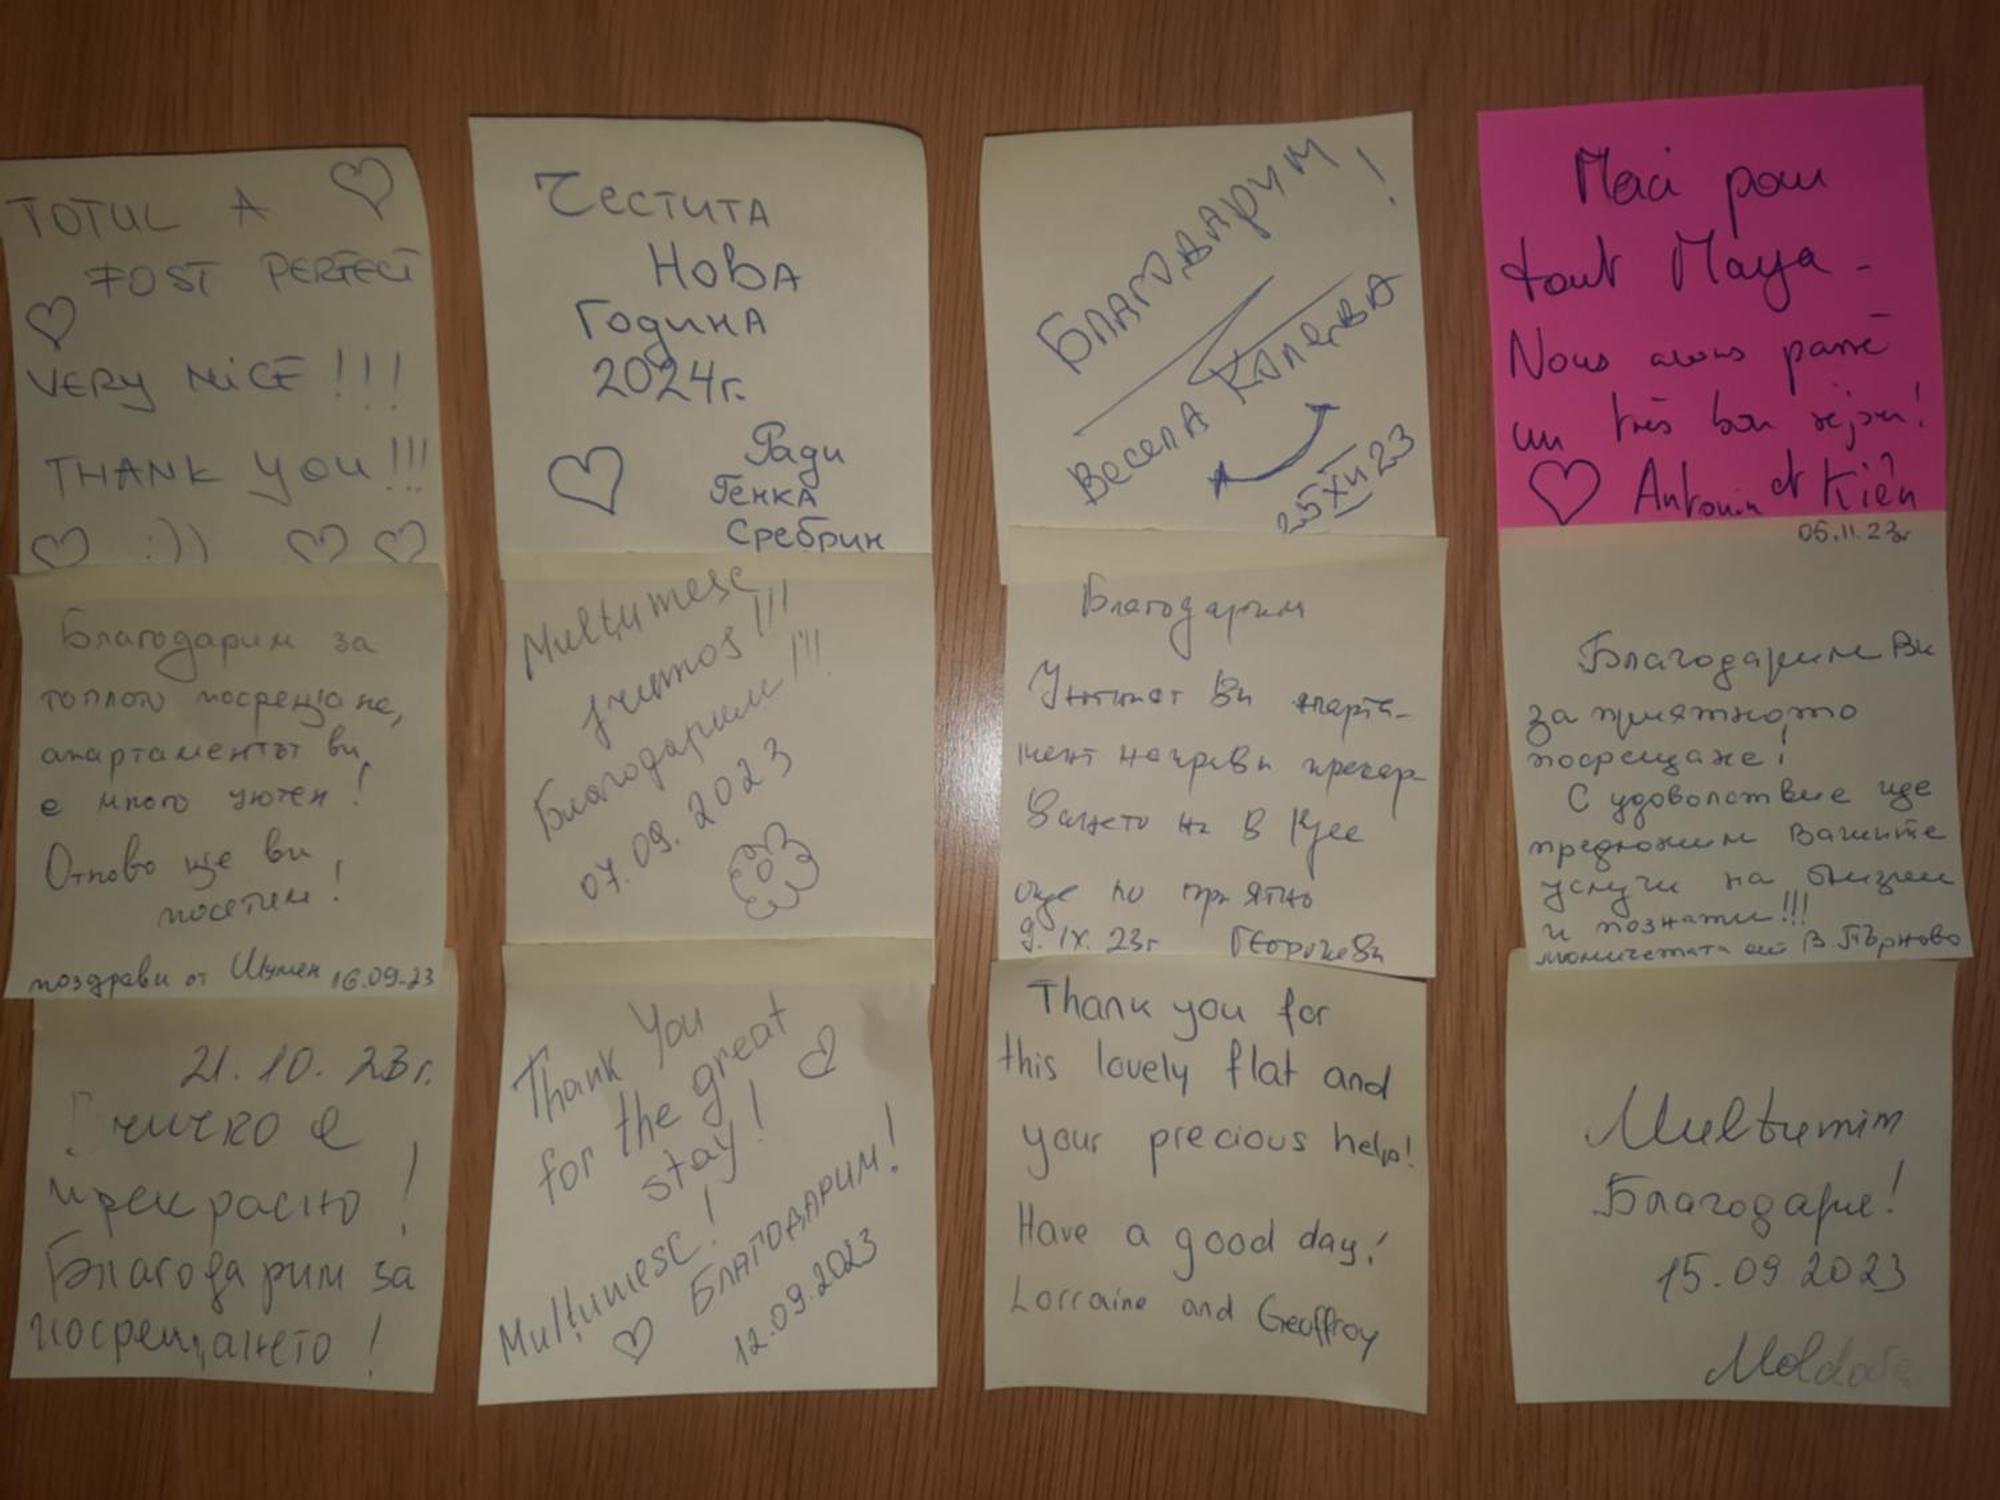 TOTUL A
FOST PERFECT
VERY NICE!!!
THANK YOU!!!
:))
Честита
Нова
Година
2024г.
Ради
Генка
Сребрин
Благодарим!
Весела Колева
25 XII 23
Merci pour
tout Maya -
Nous avons passé
un très bon séjour!
Antonin et Kiên
Благодарим за
топлото посрещане,
апартаментът ви
е много уютен!
Отново ще ви
посетим!
поздрави от Шумен 16.09.23
Mulțumesc
frumos!!!
Благодарим!!!
07.09.2023
Благодарим
Уютният Ви апарта-
мент направи прекар-
ването ни в Русе
още по приятно
9. IX. 23г Георгиеви
05.11.23г
Благодарим Ви
за приятното
посрещане!
С удоволствие ще
предложим Вашите
услуги на близки
и познати!!!
момичетата от В. Търново
21.10.23г.
Всичко е
прекрасно!
Благодарим за
посрещането!
Thank You
for the great
stay!
Mulțumesc!
Благодарим!
12.09.2023
Thank you for
this lovely flat and
your precious help!
Have a good day!
Lorraine and Geoffroy
Multumim
Благодаря!
15.09 2023